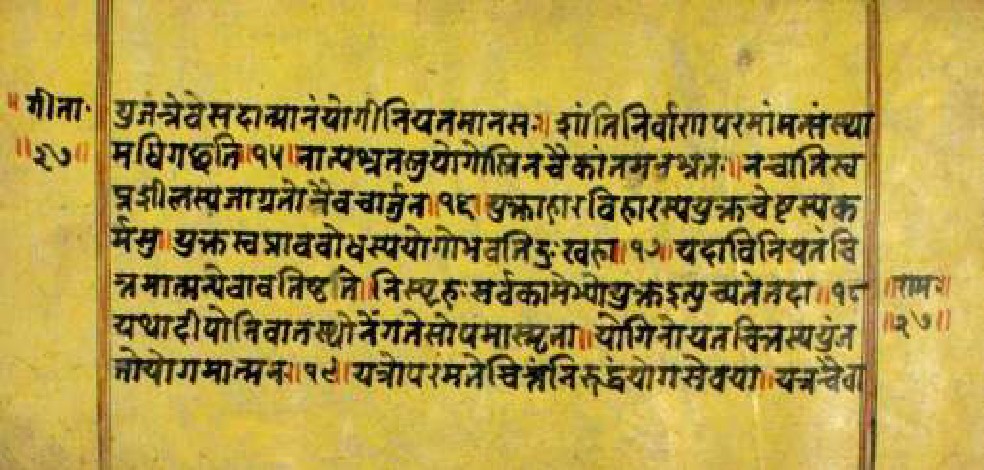 ॥गीता॰
॥२७॥
युजंन्नेवेसदात्मानंयोगीनियतमानसः॥शांतिनिर्वाणपरमांमत्संस्था
मधिगछति॥१५॥नात्यश्नतस्तुयोगोस्तिनचैकांतमनश्नतः॥नचातिस्व
प्नशीलस्यजाग्रतोनैवचार्जुन॥१६॥युक्ताहारविहारस्ययुक्तचेष्टस्यक
र्मसु॥युक्तस्वप्नावबोधस्ययोगोभवतिदुःखहा॥१७॥यदाविनियतंचि
त्तमात्मन्येवावतिष्ठते॥निस्पृहःसर्वकामेभ्योयुक्तइत्युच्यतेतदा॥१८
यथादीपोनिवातस्थोनेंगतेसोपमास्मृता॥योगिनोयतचित्तस्ययुंज
तोयोगमात्मनः॥१९॥यत्रोपरंमतेचित्तंनिरुद्धंयोगसेवया॥यत्रचैवा
॥रामः॥
॥२७॥